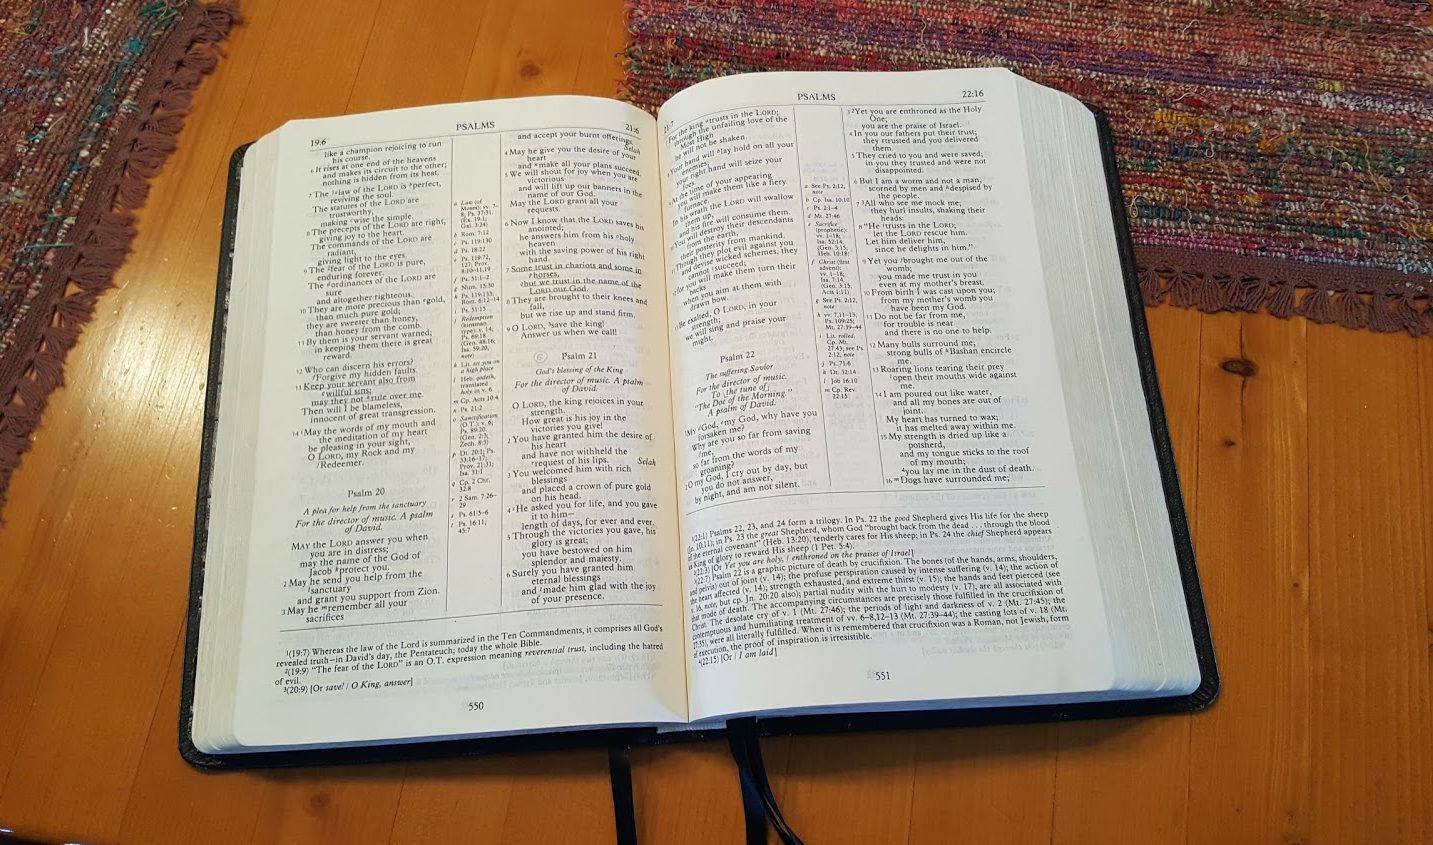 PSALMS
19:6
21:6
like a champion rejoicing to run
his course.
6 It rises at one end of the heavens
and makes its circuit to the other;
nothing is hidden from its heat.
7 The law of the LORD is perfect,
reviving the soul.
The statutes of the LORD are
trustworthy,
making wise the simple.
8 The precepts of the LORD are right,
giving joy to the heart.
The commands of the LORD are
radiant,
giving light to the eyes.
9 The fear of the LORD is pure,
enduring forever.
The ordinances of the LORD are
sure
and altogether righteous.
10 They are more precious than gold,
than much pure gold;
they are sweeter than honey,
than honey from the comb.
11 By them is your servant warned;
in keeping them there is great
reward.
12 Who can discern his errors?
Forgive my hidden faults.
13 Keep your servant also from
willful sins;
may they not rule over me.
Then will I be blameless,
innocent of great transgression.
14 May the words of my mouth and
the meditation of my heart
be pleasing in your sight,
O LORD, my Rock and my
Redeemer.
Psalm 20
A plea for help from the sanctuary
For the director of music. A psalm
of David.
MAY the LORD answer you when
you are in distress;
may the name of the God of
Jacob protect you.
2 May he send you help from the
sanctuary
and grant you support from Zion.
3 May he remember all your
sacrifices
and accept your burnt offerings.
Selah
4 May he give you the desire of your
heart
and make all your plans succeed.
5 We will shout for joy when you are
victorious
and will lift up our banners in the
name of our God.
May the LORD grant all your
requests.
6 Now I know that the LORD saves his
anointed;
he answers him from his holy
heaven
with the saving power of his right
hand.
7 Some trust in chariots and some in
horses,
but we trust in the name of the
LORD our God.
8 They are brought to their knees and
fall,
but we rise up and stand firm.
9 O LORD, save the king!
Answer us when we call!
Psalm 21
God's blessing of the King
For the director of music. A psalm
of David.
O LORD, the king rejoices in your
strength.
How great is his joy in the
victories you give!
2 You have granted him the desire of
his heart
and have not withheld the
request of his lips. Selah
3 You welcomed him with rich
blessings
and placed a crown of pure gold
on his head.
4 He asked you for life, and you gave
it to him—
length of days, for ever and ever.
5 Through the victories you gave, his
glory is great;
you have bestowed on him
splendor and majesty.
6 Surely you have granted him
eternal blessings
and made him glad with the joy
of your presence.
1(19:7) Whereas the law of the Lord is summarized in the Ten Commandments, it comprises all God's
revealed truth—in David's day, the Pentateuch; today the whole Bible.
2(19:9) "The fear of the LORD" is an O.T. expression meaning reverential trust, including the hatred
of evil.
3(20:9) [Or save! / O King, answer]
550
PSALMS
21:7
22:16
7 For the king trusts in the LORD;
through the unfailing love of the
Most High
he will not be shaken.
8 Your hand will lay hold on all your
enemies;
your right hand will seize your
foes.
9 At the time of your appearing
you will make them like a fiery
furnace.
In his wrath the LORD will swallow
them up,
and his fire will consume them.
10 You will destroy their descendants
from the earth,
their posterity from mankind.
11 Though they plot evil against you
and devise wicked schemes, they
cannot succeed;
12 for you will make them turn their
backs
when you aim at them with
drawn bow.
13 Be exalted, O LORD, in your
strength;
we will sing and praise your
might.
Psalm 22
The suffering Savior
For the director of music.
To the tune of
"The Doe of the Morning."
A psalm of David.
My God, my God, why have you
forsaken me?
Why are you so far from saving
me,
so far from the words of my
groaning?
2 O my God, I cry out by day, but
you do not answer,
by night, and am not silent.
3 Yet you are enthroned as the Holy
One;
you are the praise of Israel.
4 In you our fathers put their trust;
they trusted and you delivered
them.
5 They cried to you and were saved;
in you they trusted and were not
disappointed.
6 But I am a worm and not a man,
scorned by men and despised by
the people.
7 All who see me mock me;
they hurl insults, shaking their
heads:
8 "He trusts in the LORD;
let the LORD rescue him.
Let him deliver him,
since he delights in him."
9 Yet you brought me out of the
womb;
you made me trust in you
even at my mother's breast.
10 From birth I was cast upon you;
from my mother's womb you
have been my God.
11 Do not be far from me,
for trouble is near
and there is no one to help.
12 Many bulls surround me;
strong bulls of Bashan encircle
me.
13 Roaring lions tearing their prey
open their mouths wide against
me.
14 I am poured out like water,
and all my bones are out of
joint.
My heart has turned to wax;
it has melted away within me.
15 My strength is dried up like a
potsherd,
and my tongue sticks to the roof
of my mouth;
you lay me in the dust of death.
16 Dogs have surrounded me;
1(22:1) Psalms 22, 23, and 24 form a trilogy. In Ps. 22 the good Shepherd gives His life for the sheep
(Jn. 10:11); in Ps. 23 the great Shepherd, whom God "brought back from the dead . . . through the blood
of the eternal covenant" (Heb. 13:20), tenderly cares for His sheep; in Ps. 24 the chief Shepherd appears
as King of glory to reward His sheep (1 Pet. 5:4).
2(22:3) [Or Yet you are holy, / enthroned on the praises of Israel]
3(22:7) Psalm 22 is a graphic picture of death by crucifixion. The bones (of the hands, arms, shoulders,
and pelvis) out of joint (v. 14); the profuse perspiration caused by intense suffering (v. 14); the action of
the heart affected (v. 14); strength exhausted, and extreme thirst (v. 15); the hands and feet pierced (see
v. 16, note, but cp. Jn. 20:20 also); partial nudity with the hurt to modesty (v. 17), are all associated with
that mode of death. The accompanying circumstances are precisely those fulfilled in the crucifixion of
Christ. The desolate cry of v. 1 (Mt. 27:46); the periods of light and darkness of v. 2 (Mt. 27:45); the
contemptuous and humiliating treatment of vv. 6–8,12–13 (Mt. 27:39–44); the casting lots of v. 18 (Mt.
27:35), were all literally fulfilled. When it is remembered that crucifixion was a Roman, not Jewish, form
of execution, the proof of inspiration is irresistible.
4(22:15) [Or / I am laid]
551